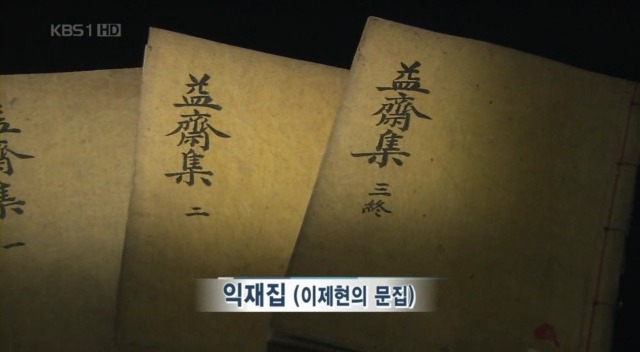 KBS1 HD
益齋集 一
益齋集 二
益齋集 三終
익재집 (이제현의 문집)